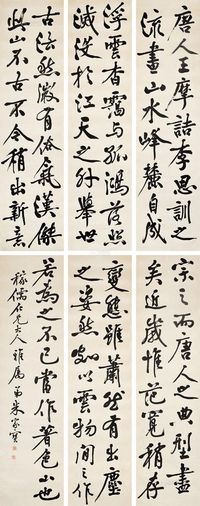 唐人王摩詰李思訓之
流畫山水峰麓自成
變態雖蕭然有出塵
之姿然頗以雲物間之作
浮雲杳靄與孤鴻落照
滅沒於江天之外舉世
宗之而唐人之典型盡
矣近歲惟范寬稍存
古法然微有俗氣漢傑
此山不古不今稍出新意
若為之不已當作著色山也
稼儒仁兄大人雅屬 弟朱家寶